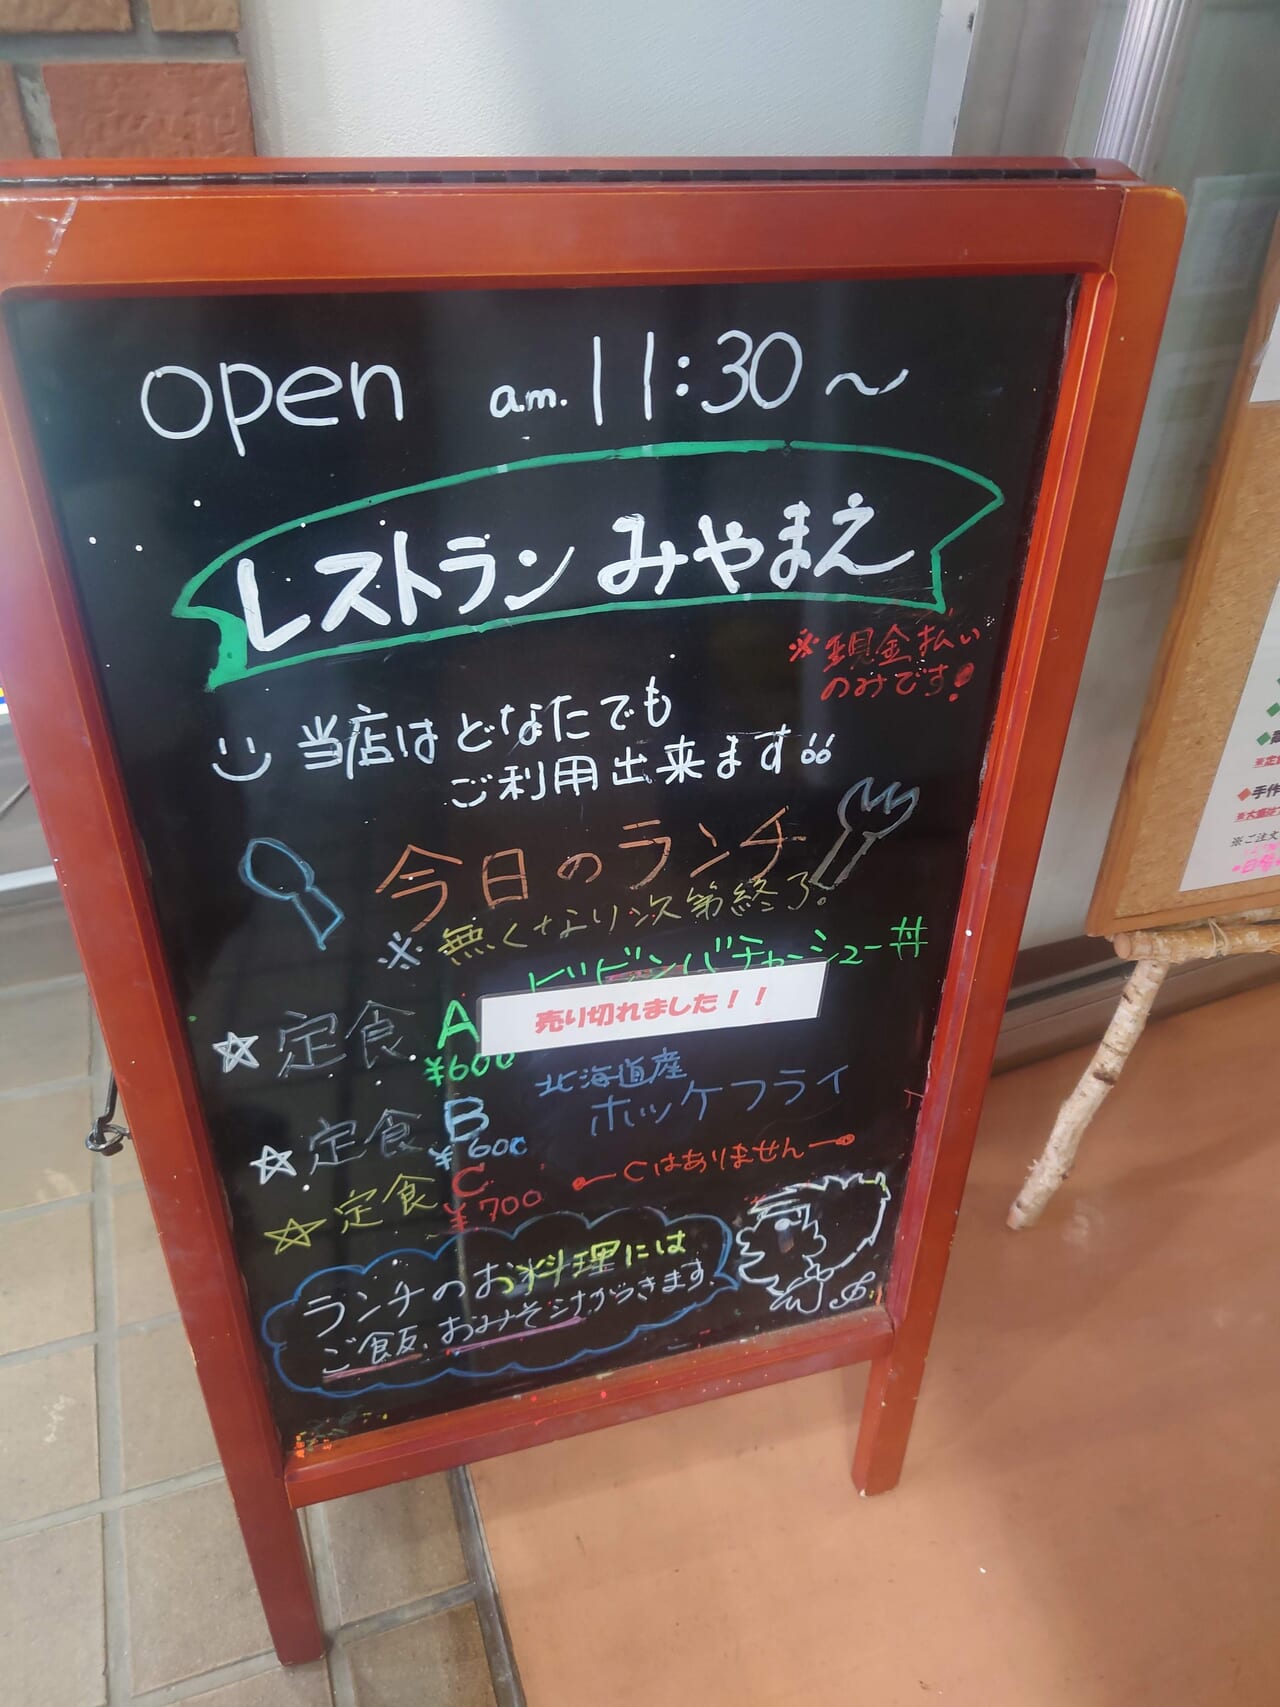 open am. 11:30～
レストラン みやまえ
※現金払い
のみです!
当店はどなたでも
ご利用出来ます!!
今日のランチ
※無くなり次第終了。
ビビンバチャーシュー丼
☆定食 A
売り切れました！！
¥600
北海道産
☆定食 B ホッケフライ
¥600
☆定食 C Cはありません
¥700
ランチのお料理には
ご飯、おみそシルがつきます。
◆手作
※ご注文